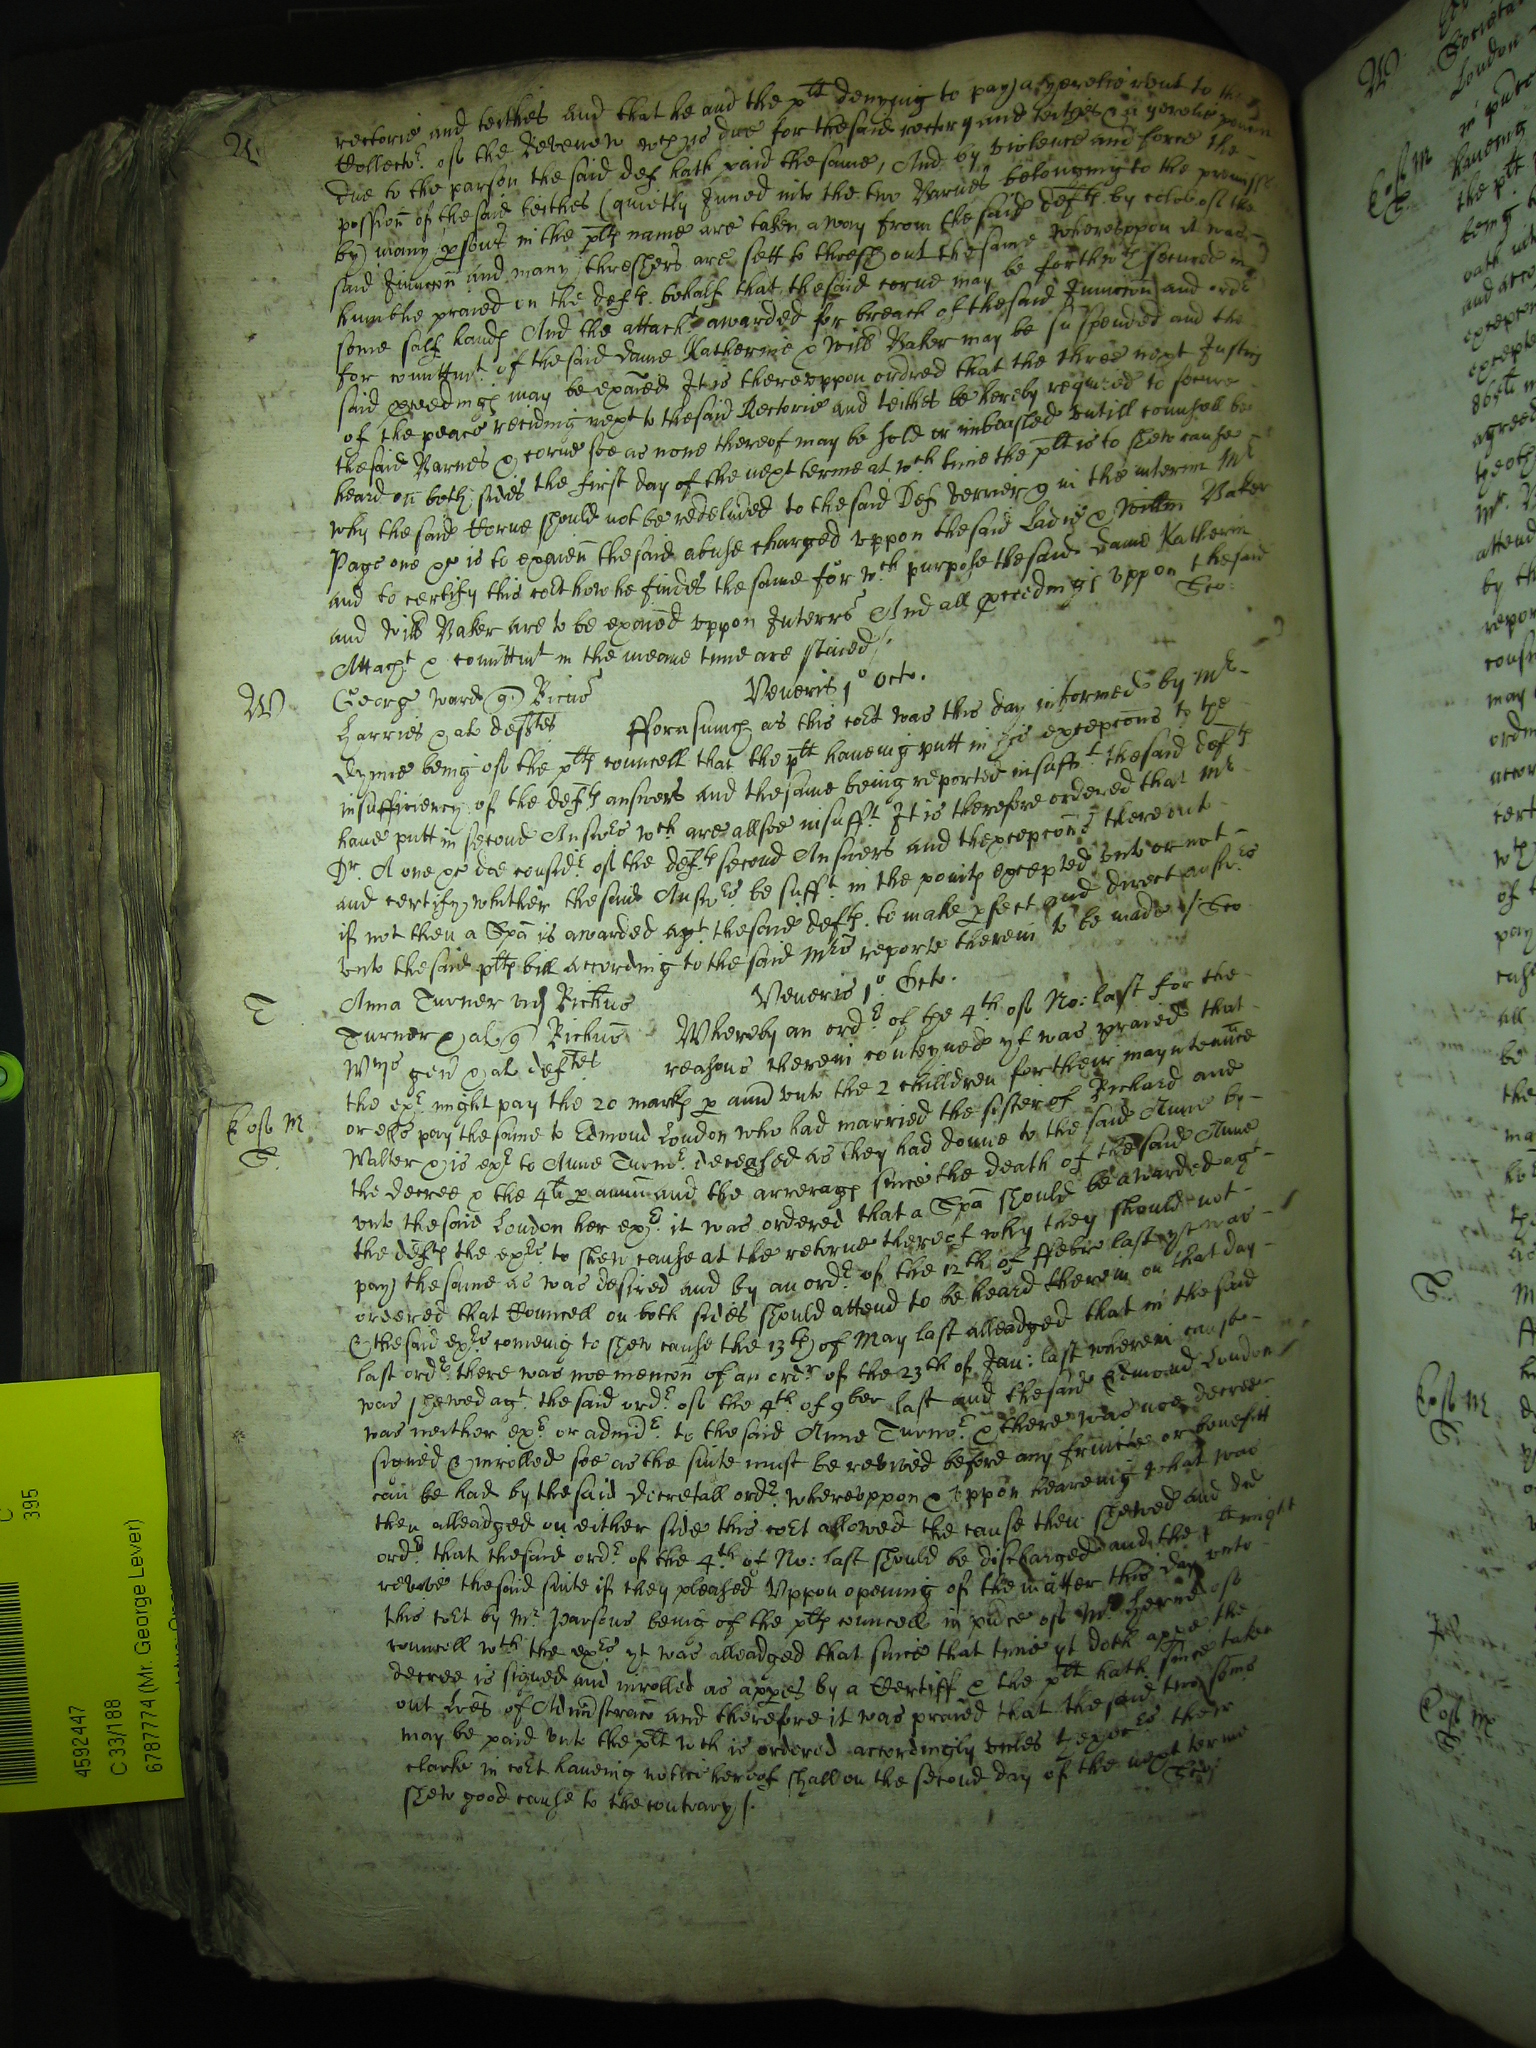 rectorie and teithes And that he and the plt denying to pay a yerelie rent to the
Collectr of the Revenew wch is due for thesaid rectory and teithes & a yerelie pencon
due to the parson the said def hath paid thesame, And by violence and force the
possion of thesaid teithes (quietly Inned into the two Barnes belonging to the premisses
by) many psons in the plts name are taken away from thesaid defts by color of the
said Iniuncon and many threshers are sett to thresh out thesame Whereuppon it was
humblie praied on the defts behalf that thesaid corne may be forthwth secured in
some saff hands And the attachmt awarded for breach of thesaid Iniuncon and ordr
for comittmt of thesaid dame Katherine & Willm Baker may be suspended and the
said pceedings may be exaied It is thereuppon ordred that the three next Justics
of the peace reciding next to thesaid Rectorie and teithes be hereby required to secure
thesaid Barnes & corne soe as none thereof may be sold or imbeasled untill counsell be
heard on both sides the first day of the next terme at wch time the plt is to shew cause
why the said Corne should not be redelived to thesaid Def Verrier & in the interim Mr
Page one &c is to exaien thesaid abuse charged uppon thesaid Ladie & Willm Baker
and to certify this cort how he findes the same for wch purpose thesaid dame Katherin
and Willm Baker are to be exaied uppon Interrs And all pceedings uppon thesaid
Attachmt & comittmt in the meane time are staied
George Ward q Ricus
Harries & al defts
Veneris 1o Octo.
fforasmuch as this cort was this day informed by Mr
Dyme being of the plts councell that the plt haveing putt in his excepcons to the
insufficiency of the defts answers and thesame being reported insufft thesaid defts
have putt in second Answrs wch are allsoe insufft It is therefore ordered that Mr
Dr. A one &c doe considr of the defts second Answers and thexcepcons thereunto
and certify whither thesaid Answrs be sufft in the points excepted unto or not
if not then a Spa is awarded agt thesaid defts to make pfect and direct answrs
unto thesaid plts bill according to the said Mrs reporte therein to be made
Anna Turner vid
Turner & al q Ricus
gen & al deftes
Veneris 1o Octo.
Whereby an ordr of the 4th of No: last for the
reasons therein conteyned yt was praied that
the exr might pay the 20 marks p ann unto the 2 children for their mayntenance
or els pay thesame to Edmond London who had married the sister of Richard and
Walter & is exr to Anne Turnr deceased as they had donne to the said Anne by
the decree & the 4li p annu and the arrerags since the death of thesaid Anne
unto thesaid London her exr it was ordered that a Spa should be awarded agt
the defts the exrs to shew cause at the retorne thereof why they should not
pay thesame as was desired and by an ordr of the 12th of ffebr last yt was
ordered that Councell on both sides should attend to be heard therein on that day
& thesaid exrs coming to shew cause the 13th of May last alleadged that in thesaid
last ordr there was noe mencon of an ordr of the 23th of Jan: last wherein cause
was shewed agt the said ordr of the 4th of 9ber last and thesaid Edmond London
was neither exr or admidr to the said Anne Turner & there was noe decree
signed & inrolled soe as the suite must be revived before any fruite or benefitt
can be had by thesaid decretall ordr whereuppon & uppon heareing what was
then alleadged on either side this cort allowed the cause then shewed and did
ordr that thesaid ordr of the 4th of No: last should be discharged and the plt might
revive thesaid suite if they pleased Uppon opening of the matter this day unto
this cort by Mr Parsons being of the plts councell in pnce of Mr Herne of
councell wth the exrs yt was alleadged that since that time yt doth appe the
decree is signed and inrolled as appes by a Certiff & the plt hath since taken
out lres of Administracon and therefore it was praied that thesaid two soms
may be paid unto the plt wch is ordered accordingly unles thexecrs their
clarke in cort haveing notice hereof shall on the second day of the next terme
shew good cause to the contrary
W
T
4592447
C 33/188
6787774 (Mr. George Lever)
C
395